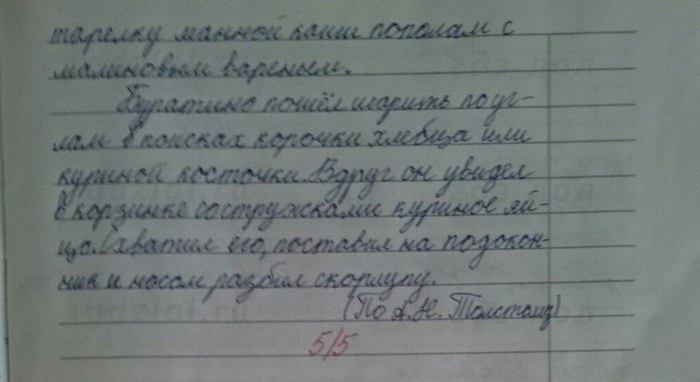 тарелку манной каши пополам с
малиновым вареньем.
Буратино пошёл шарить по уг-
лам в поисках корочки хлебца или
куриной косточки. Вдруг он увидел
в корзинке со стружками куриное яй-
цо. Схватил его, поставил на подокон-
ник и носом разбил скорлупу.
(По А. Н. Толстому)
5/5